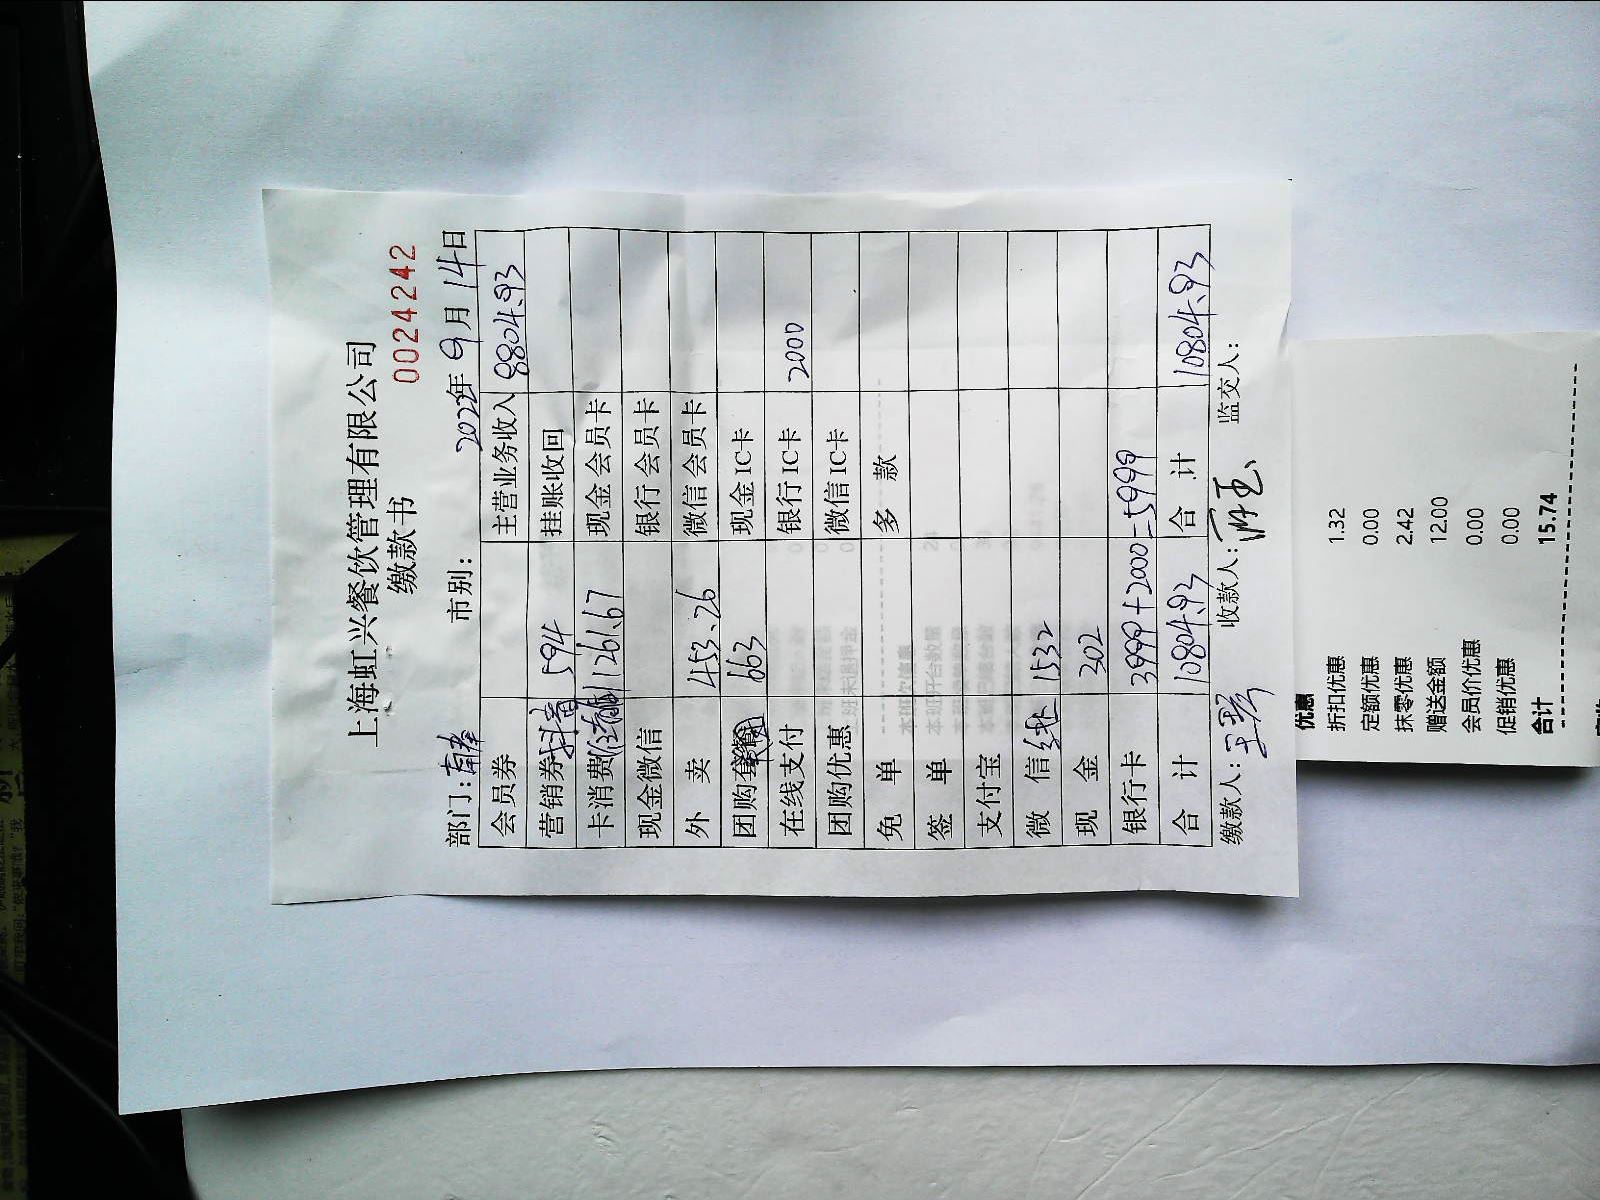 上海虹兴餐饮管理有限公司
缴款书
0024242
部门: 市别: 2022年 9月 14日
会员券 主营业务收入 8804.93
营销券 抖音 594 挂账收回
卡消费 1261.67 现金会员卡
现金微信 银行会员卡
外 卖 453.26 微信会员卡
团购套餐 663 现金IC卡
在线支付 银行IC卡 2000
团购优惠 微信IC卡
免 单 多 款
签 单
支付宝
微 信 1532
现 金 302
银行卡 3999+2000=5999
合 计 10804.93 合 计 10804.93
缴款人: 收款人: 监交人:
优惠
折扣优惠 1.32
定额优惠 0.00
抹零优惠 2.42
赠送金额 12.00
会员价优惠 0.00
促销优惠 0.00
合计 15.74